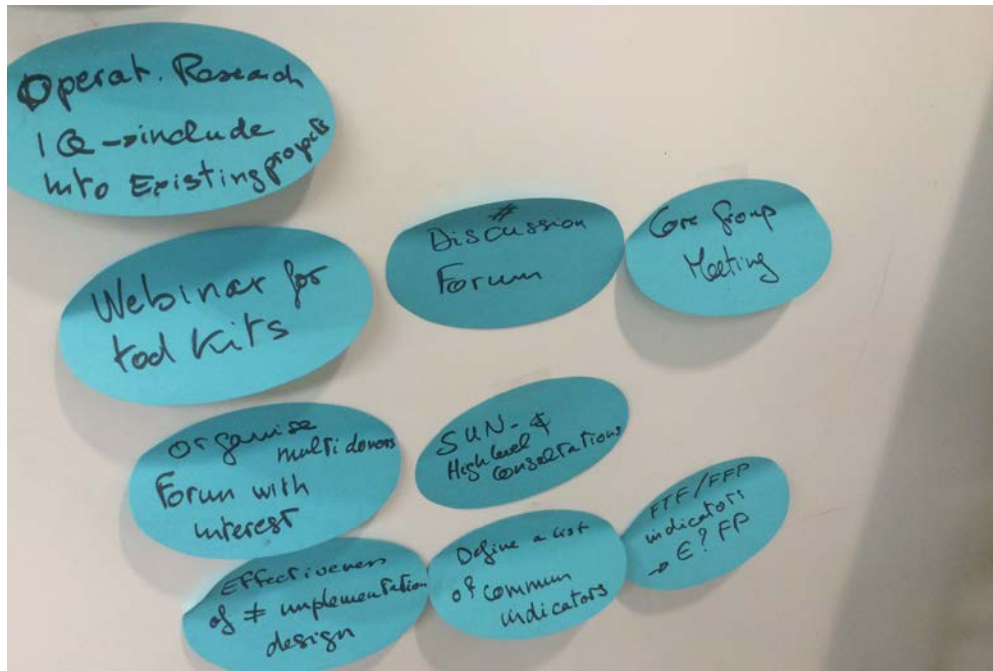 Operat. Research
1 Q → include
into Existing projects
Webinar for
tool Kits
#
Discussion
Forum
Core Group
Meeting
organise
multi donors
Forum with
interest
SUN- &
High level
Consultations
Effectiveness
of ≠ implementation
design
Define a list
of commun
indicators
FTF/FFP
indicators
→ E? FP